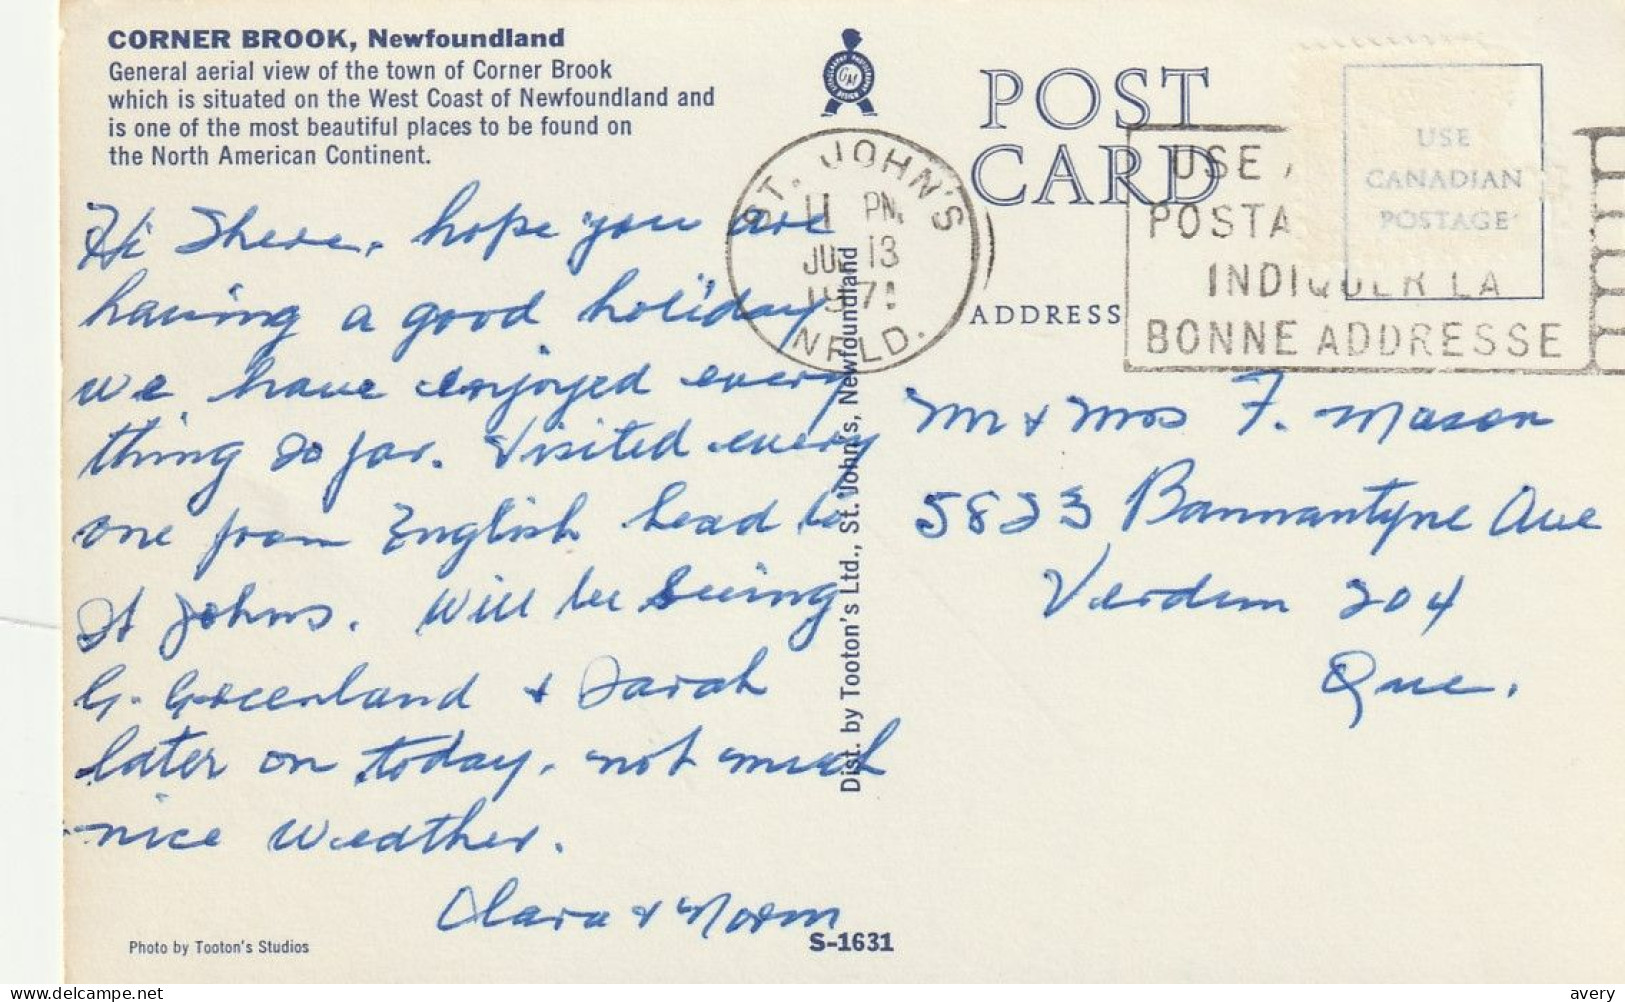 CORNER BROOK, Newfoundland
General aerial view of the town of Corner Brook
which is situated on the West Coast of Newfoundland and
is one of the most beautiful places to be found on
the North American Continent.
Hi There, hope you are
having a good holiday
we have enjoyed every
thing so far. Visited every
one from English head to
St Johns. Will be seeing
G. Greenland & Sarah
later on today, not much
nice weather.
Clara & Norm
Photo by Tooton's Studios
S-1631
Dist. by Tooton's Ltd., St. John's, Newfoundland
GM
POST
CARD
ADDRESS
USE
CANADIAN
POSTAGE
ST. JOHN'S
11 PM
13
NFLD.
USE
POSTA
INDIQUER LA
BONNE ADDRESSE
Mr & Mrs F. Mason
5823 Bannantyne Ave
Verdun 204
Que.
delcampe.net
avery